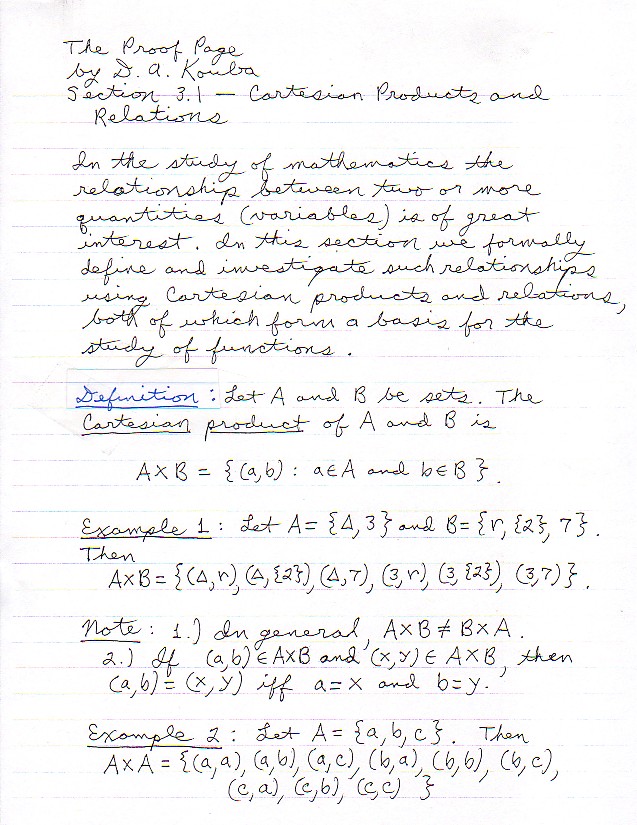 The Proof Page
by D. A. Kouba
Section 3.1 — Cartesian Products and
Relations
In the study of mathematics the
relationship between two or more
quantities (variables) is of great
interest. In this section we formally
define and investigate such relationships
using Cartesian products and relations,
both of which form a basis for the
study of functions.
Definition: Let A and B be sets. The
Cartesian product of A and B is
A×B = {(a,b) : a∈A and b∈B}.
Example 1: Let A= {Δ,3} and B={r,{2},7}.
Then
A×B = {(Δ,r), (Δ,{2}), (Δ,7), (3,r), (3,{2}), (3,7)}.
Note: 1.) In general, A×B ≠ B×A.
2.) If (a,b)∈A×B and (x,y)∈A×B, then
(a,b)=(x,y) iff a=x and b=y.
Example 2: Let A={a,b,c}. Then
A×A = {(a,a), (a,b), (a,c), (b,a), (b,b), (b,c),
(c,a), (c,b), (c,c) }